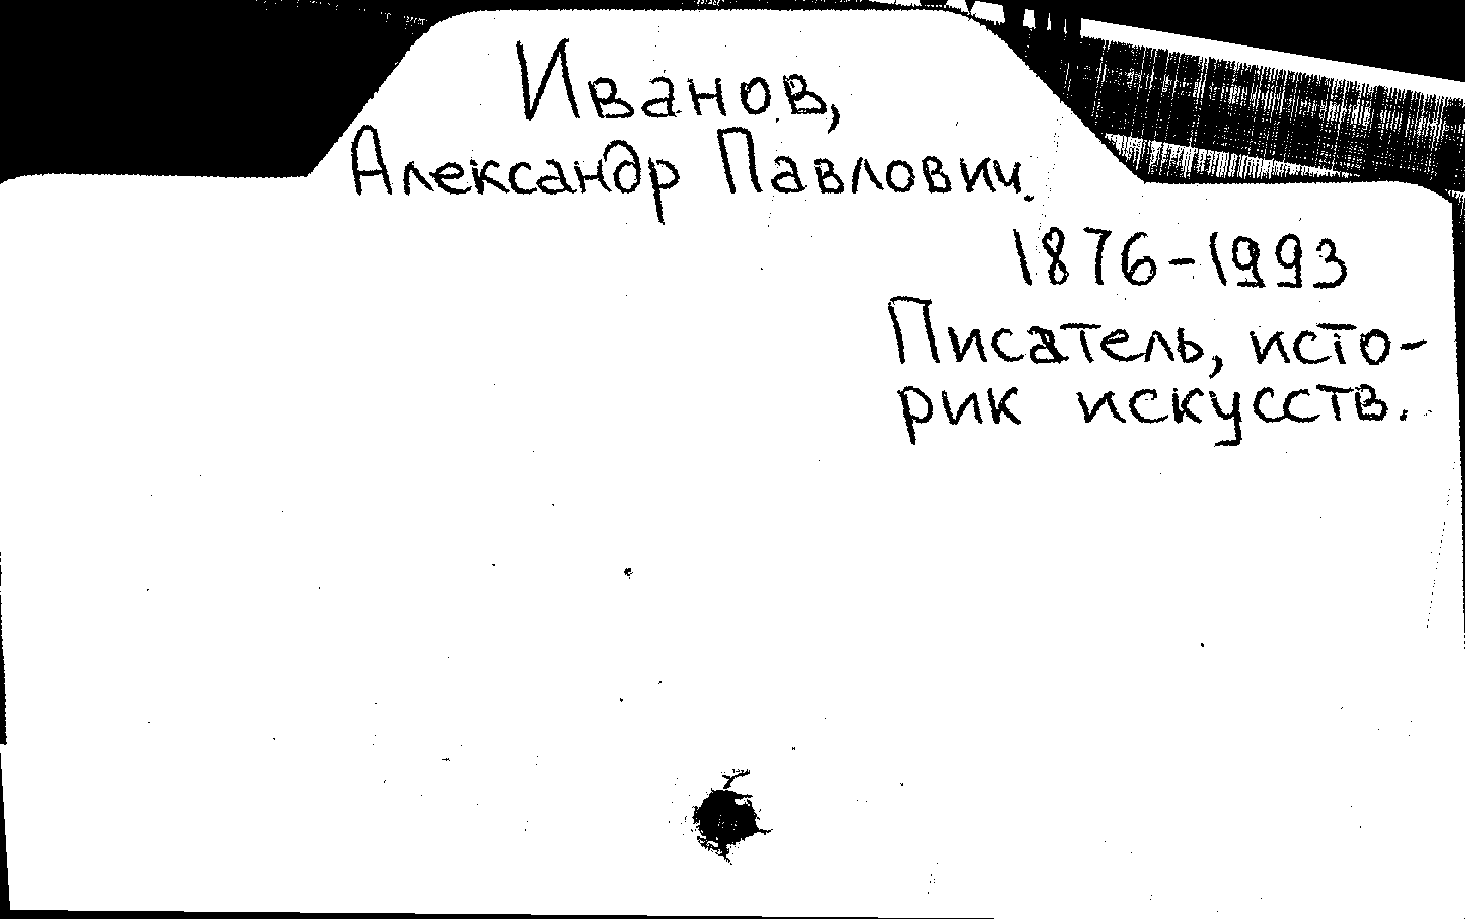 Иванов,
Александр Павлович.
1876-1993
Писатель, исто-
рик искусств.